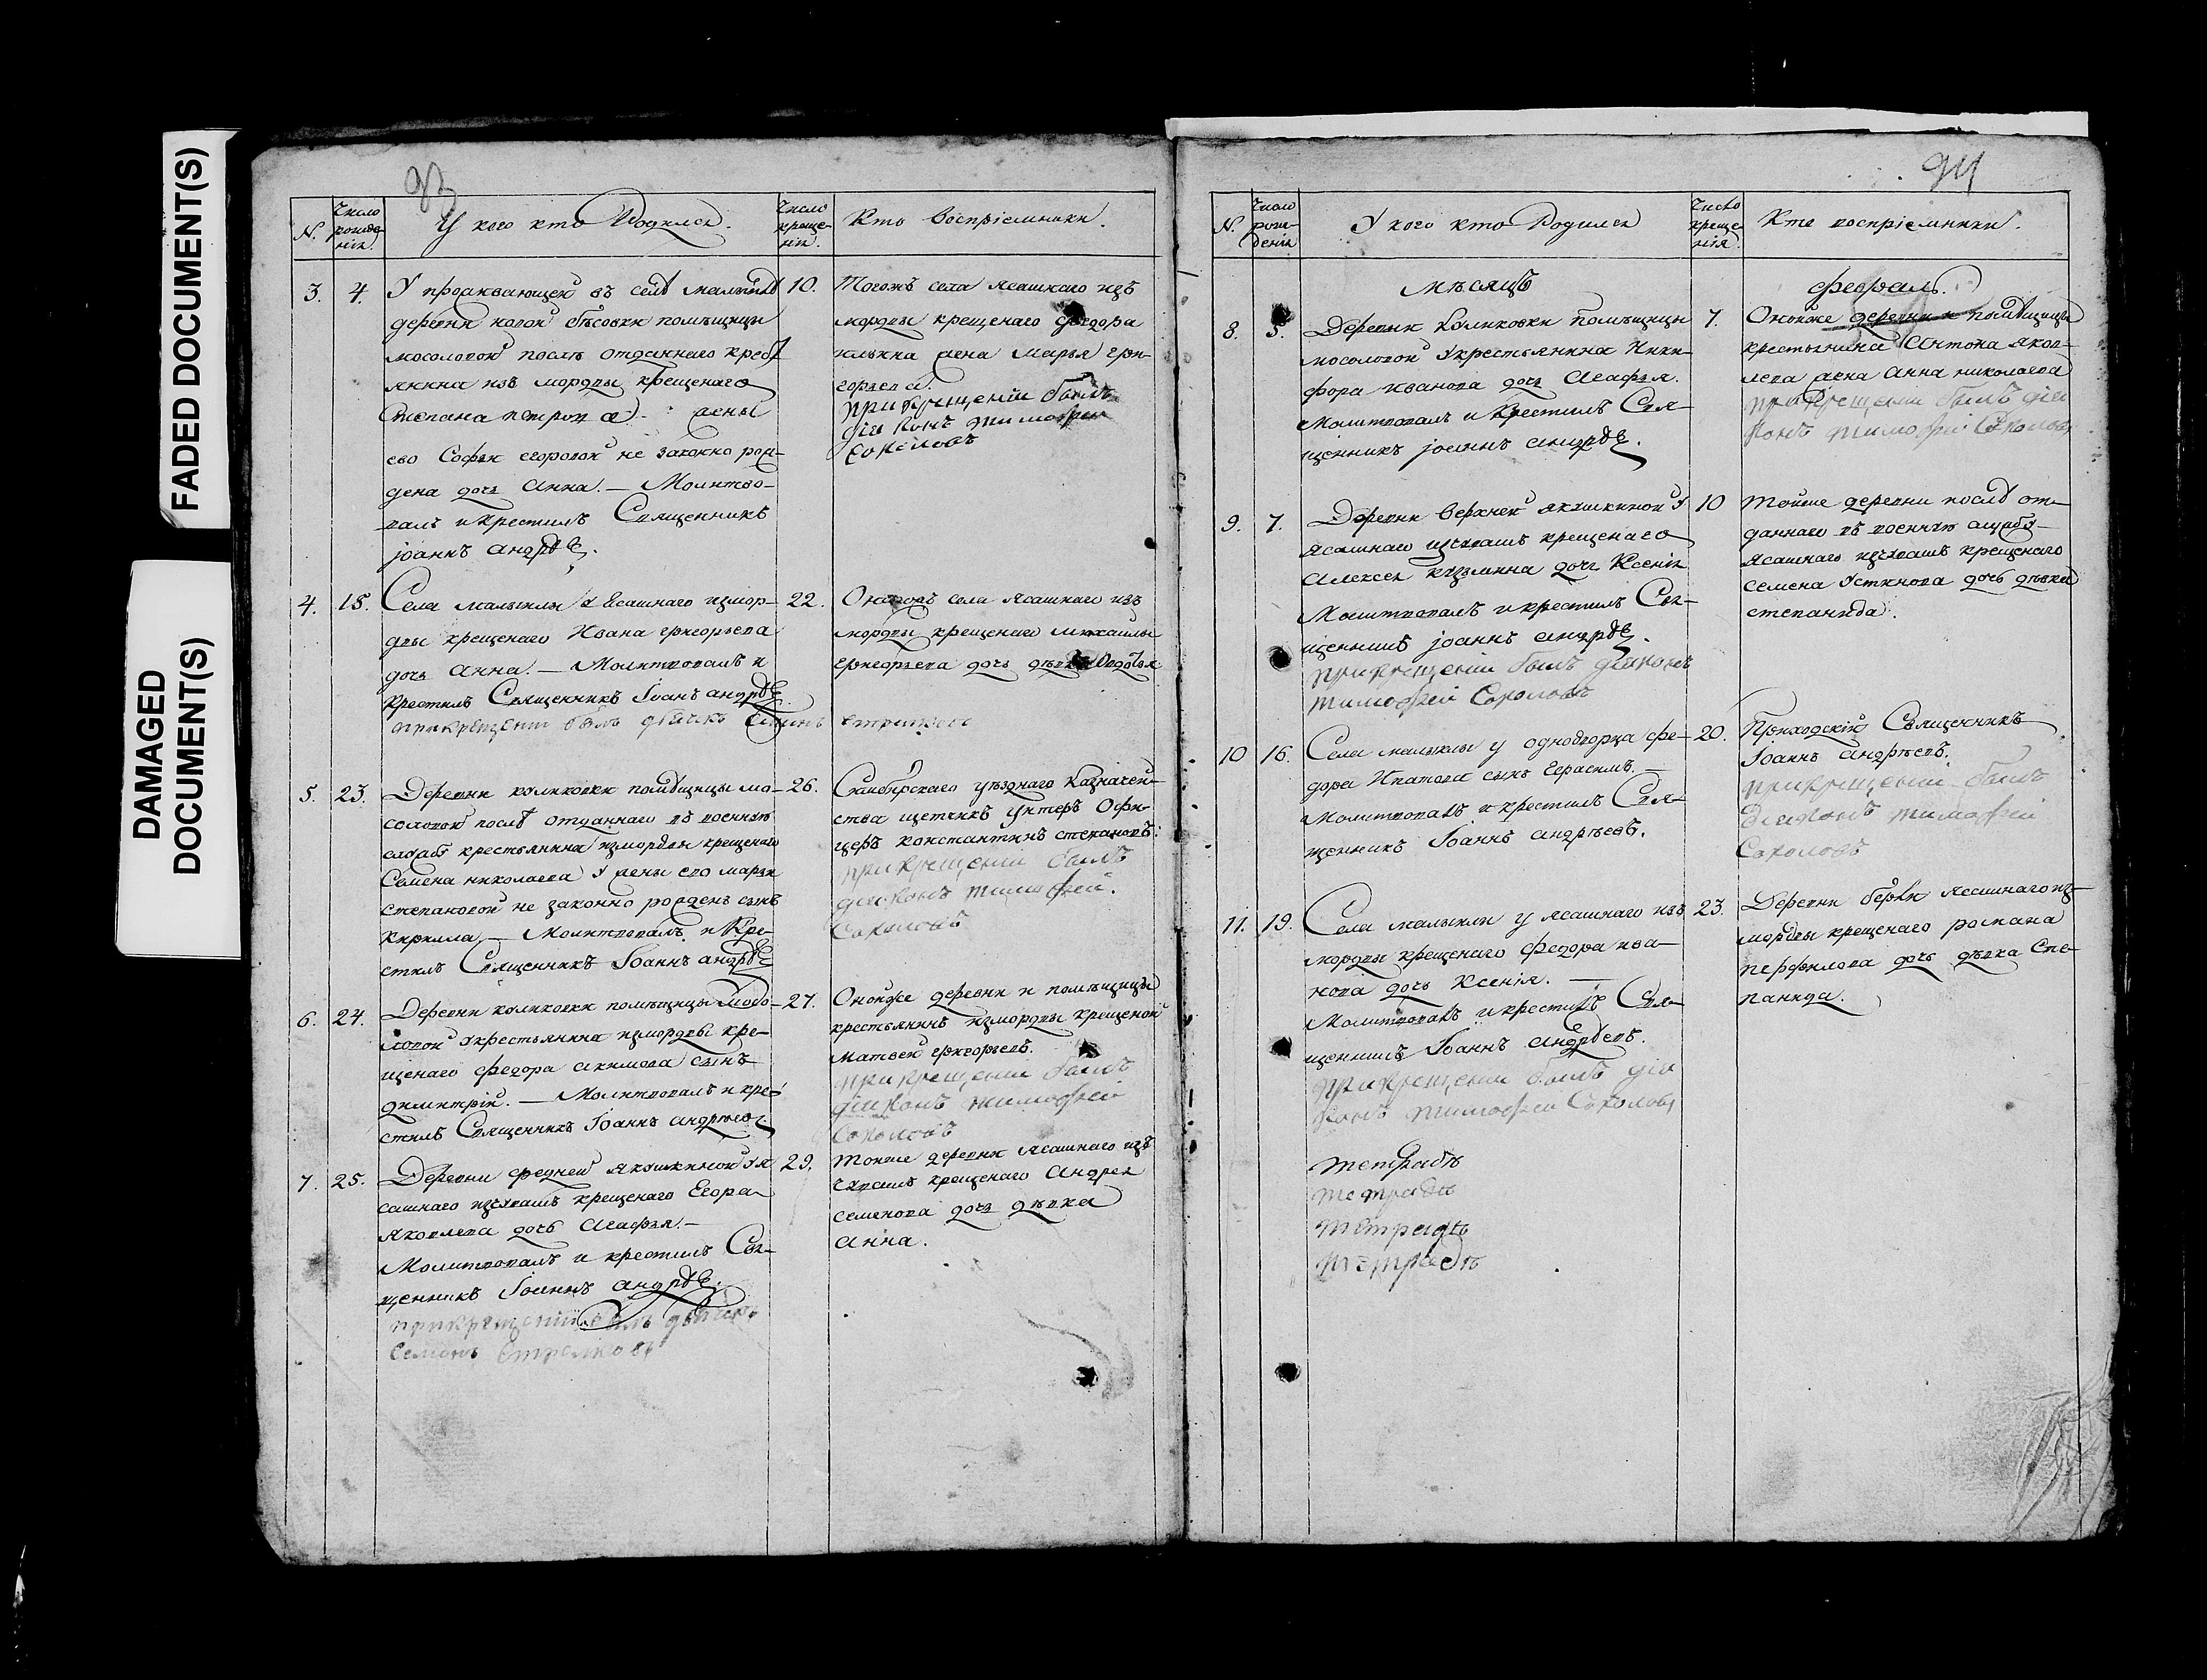 FADED DOCUMENT(S)
DAMAGED
DOCUMENT(S)
93
N.
Число
рожде-
нія.
У кого кто Родился.
Число
креще-
нія.
Кто Воспріемники.
3. 4.
У проживающей въ селѣ малыклѣ
деревни новой бѣсовки помѣщицы
мосоловой послѣ отданнаго кресть
янина изъ мордвы крещенаго
Степана петрова жены
ево Софьи егоровой не законно рож-
дена дочь Анна. — Молитво-
валъ и крестилъ Священникъ
іоаннъ андрѣе.
10.
Тогожъ села ясашнаго изъ
мордвы крещенаго федора
ильина жена Марья гри-
горьева.
при крещеніи былъ
діаконъ тимофей
Соколовъ
4. 15.
Села малыклы у Ясашнаго измор-
двы крещенаго Ивана григорьева
дочь Анна. — Молитвовалъ и
крестилъ Священникъ Іоанъ андрѣе
при крещеніи былъ дьячикъ Семенъ стрелковъ
22.
Онагожъ села Ясашнаго изъ
мордвы крещенаго михайлы
григорьева дочь дѣвка Авдотья
5. 23.
Деревни куликовки помѣщицы мо-
соловой послѣ отданнаго въ военную
службу крестьянина измордвы крещенаго
Семена николаева у жены ево марьи
степановой не законно рожденъ сынъ
Кирилла — Молитвовалъ и Кре-
стилъ Священникъ Іоаннъ андрѣе
26.
Синбирскаго уѣзднаго Казначей-
ства щетчикъ Унтеръ Офи-
церъ константинъ степановъ.
при крещеніи былъ
діаконъ тимофей.
Соколовъ
6. 24.
Деревни куликовки помѣщицы Мосо-
ловой у крестьянина измордвы кре-
щенаго федора акимова сынъ
димитрій. — Молитвовалъ и кре-
стилъ Священникъ Іоаннъ андрѣево
27.
Онойже деревни и помѣщицы
крестьянинъ измордвы крещеной
матвей григорьевъ.
при крещеніи былъ
діаконъ тимофей
Соколовъ
7. 25.
Деревни средней якушкиной у я
сашнаго изчувашъ крещенаго Егора
яковлева дочь Агафья. —
Молитвовалъ и крестилъ Свя-
щенникъ Іоаннъ андрѣе.
при крещеніи былъ дьячикъ
Семенъ Стрелковъ
29.
Тойже деревни ясашнаго изъ
чувашъ крещенаго Андрея
семенова дочь дѣвка
Анна.
94
N.
Число
рож-
денія
У кого кто Родился
Число
креще-
нія.
Кто воспріемники.
мѣсяцъ
февраль.
8. 5.
Деревни Куликовки помѣщицы
мосоловой у крестьянина Ники-
фора иванова дочь Агафья.
Молитвовалъ и крестилъ Свя-
щенникъ іоаннъ андрѣе.
7.
Онойже деревни и помѣщицы
крестьянина Антона яков-
лева жена Анна николаева
при крещеніи былъ діа
конъ тимофей Соколовъ
9. 7.
Деревни Верхней якушкиной у
ясашнаго изчувашъ крещенаго
Алексея кузьмина дочь Ксенія
Молитвовалъ и крестилъ Свя-
щенникъ іоаннъ андрѣе.
при крещеніи былъ діаконъ
тимофей Соколовъ
10
тойже деревни послѣ от-
даннаго въ военную службу
ясашнаго изчувашъ крещенаго
семена устинова дочь дѣвка
степанида.
10 16.
Села малыклы у однодворца фе-
дора Ипатова сынъ Герасимъ. —
Молитвовалъ и крестилъ Свя-
щенникъ Іоаннъ андрѣевъ.
20.
Приходскій Священникъ
Іоаннъ андрѣевъ.
при крещеніи былъ
діаконъ тимофей
Соколовъ
11. 19.
Села малыклы у ясашнаго изъ
мордвы крещенаго федора ива-
нова дочь Ксенія. —
Молитвовалъ и крестилъ Свя-
щенникъ Іоаннъ Андрѣевъ.
при крещеніи былъ діа
конъ тимофей Соколовъ
23.
Деревни ясашнаго из-
мордвы крещенаго романа
перфилова дочь дѣвка Сте-
панида.
тетрадь
тетрадь
тетрадь
тетрадь